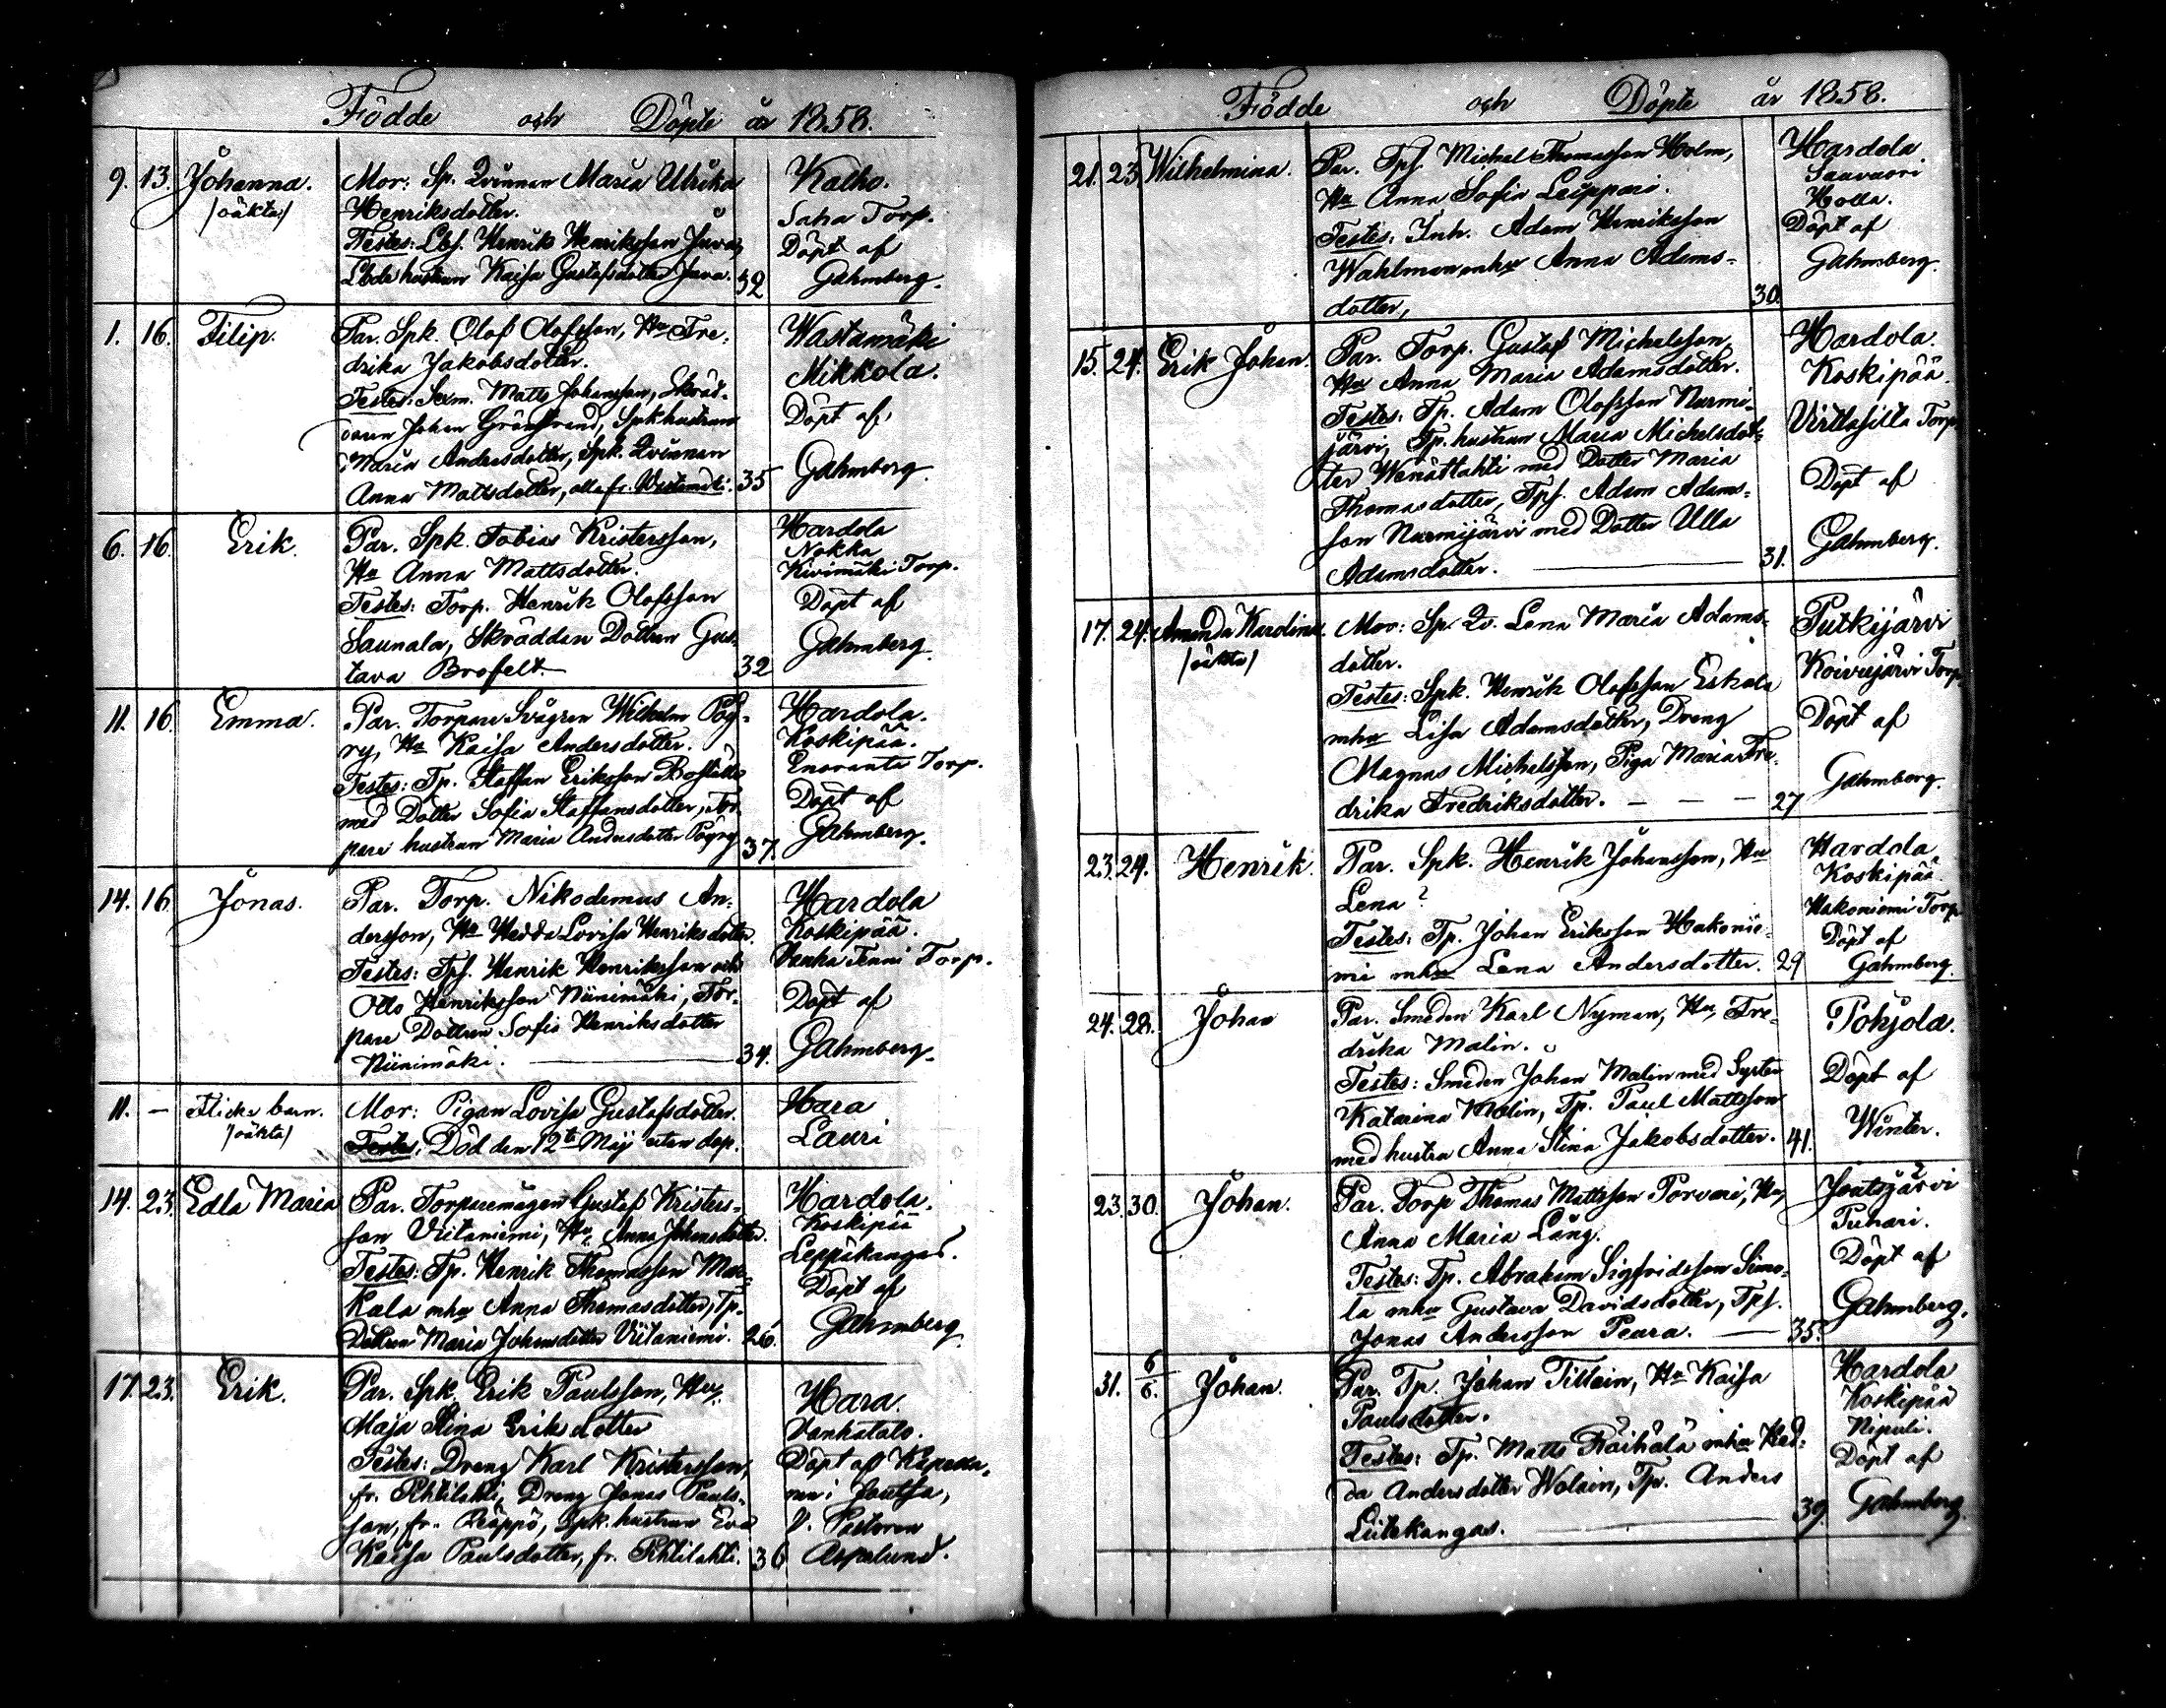 Födde och Döpte år 1858.
9. 13. Johanna. Mor: Sp. Qvinnan Maria Ulrika Kalho.
/oäkta/ Henriksdotter. Saha Torp.
Testes: Lbf. Henrik Henriksson Juva, Döpt af
Lbde hustrun Kajsa Gustafsdotter Juva. 32 Gahmberg.
1. 16. Filip. Par. Spk. Olof Olofsson, Hu Fre- Wastamäki
drika Jakobsdotter. Mikkola.
Testes: Sexm. Matts Johansson, Skräd- Döpt af
daren Johan Grönstrand, Spkhustrun
Maria Andersdotter, Spk. Qvinnan
Anna Mattsdotter, alla fr. 35 Gahmberg.
6. 16. Erik. Par. Spk. Tobias Kristersson, Hardola
Hu Anna Mattsdotter. Nokka
Kivimäki Torp.
Testes: Torp. Henrik Olofsson Döpt af
Saunala, Skräddare Dottren Gus- Gahmberg.
tava Brofelt. 32
11. 16. Emma. Par. Torpare Svågren Wilhelm Pög- Hardola.
ry, Hu Kaisa Andersdotter. Koskipää.
Testes: Tp. Staffan Eriksson Enoranta Torp.
med Dotter Sofia Staffansdotter, Tor- Döpt af
pare hustrun Maria Andersdotter Pögry 37. Gahmberg.
14. 16. Jonas. Par. Torp. Nikodemus An- Hardola
dersson, Hu Hedda Lovisa Henriksdotter. Koskipää.
Testes: Tpf. Henrik Henriksson och Torp.
Otto Henriksson Niinimäki, Tor- Döpt af
pare Dottren Sofia Henriksdotter
Niinimäki. 34. Gahmberg.
11. — Flicke barn. Mor: Pigan Lovisa Gustafsdotter. Hara
/oäkta/ Testes: Död den 12te Maj utan dop. Lauri
14. 23. Edla Maria Par. Torparemågen Gustaf Kristers- Hardola.
son Viitaniemi, Hu Anna Johansdotter. Koskipää
Testes: Tp. Henrik Thomasson Mas- Leppäkangas.
kala mhu Anna Thomasdotter, Tp. Döpt af
Dottren Maria Johansdotter Viitaniemi. 26. Gahmberg.
17. 23. Erik. Par. Spk. Erik Paulsson, Hu Hara.
Maja Stina Eriksdotter Vanhatalo.
Testes: Dreng Karl Kristersson, Döpt af Kapella-
fr. Dreng Jonas Pauls- nen i Joutsa,
son, fr. Spk. hustrun Eva V. Pastoren
Kaisa Paulsdotter, fr. 36 Asplund.
Födde och Döpte år 1858.
21. 23. Wilhelmina. Par. Tpf. Michel Thomasson Holm, Hardola.
Hu Anna Sofia Leippari. Saavuori
Testes: Inh. Adam Henriksson Holla.
Wahlman mhu Anna Adams- Döpt af
dotter, 30. Gahmberg.
15. 24. Erik Johan. Par. Torp. Gustaf Michelsson, Hardola.
Hu Anna Maria Adamsdotter. Koskipää.
Testes: Tp. Adam Olofsson Nurmi- Virtasilta Torp
järvi, Tp. hustrun Maria Michelsdot-
ter Wenättahti med Dotter Maria Döpt af
Thomasdotter, Tpf. Adam Adams-
son Nurmijärvi med Dotter Ulla Gahmberg.
Adamsdotter. 31.
17. 24. Amanda Karolina. Mor: Sp. Qv. Lena Maria Adams- Putkijärvi
/oäkta/ dotter. Koivujärvi Torp
Testes: Spk. Henrik Olofsson Eskola
mhu Lisa Adamsdotter, Dreng Döpt af
Magnus Michelsson, Piga Maria Fre- Gahmberg.
drika Fredriksdotter. — — — 27
23. 24. Henrik. Par. Spk. Henrik Johansson, Hu Hardola
Lena ? Koskipää
Testes: Tp. Johan Eriksson Hakonie- Hakoniemi Torp
mi mhu Lena Andersdotter. 29 Döpt af
Gahmberg.
24. 28. Johan Par. Smeden Karl Nyman, Hu, Fre- Pohjola.
drika Malin.
Testes: Smeden Johan Malin med Syster Döpt af
Katarina Malin, Tp. Paul Mattsson
med hustru Anna Stina Jakobsdotter. 41. Winter.
23. 30. Johan. Par. Torp Thomas Mattsson Porvari, Hu, Joutsjärvi 2
Anna Maria Lång. Puhari.
Testes: Tp. Abraham Sigfridsson Simo- Döpt af
la mhu Gustava Davidsdotter, Tpf.
Jonas Andersson Peura. 35. Gahmberg.
31. 6/6. Johan. Par. Tp. Johan Tillain, Hu Kaisa Hardola
Paulsdotter. Koskipää
Testes: Tp. Matts Räihälä mhu Hed- Nipuli.
da Andersdotter Wolain, Tp. Anders Döpt af
Liitekangas. 39. Gahmberg.